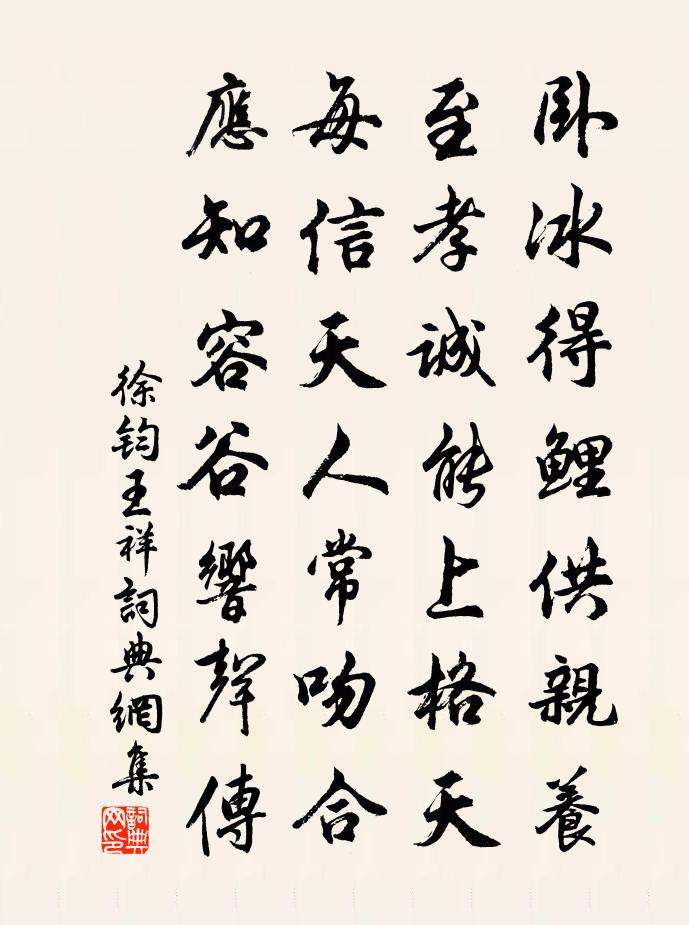 卧冰得鲤供親養
至孝誠能上格天
每信天人常吻合
應知容谷響聲傳
徐鈞王祥詞典網集
詞典网印